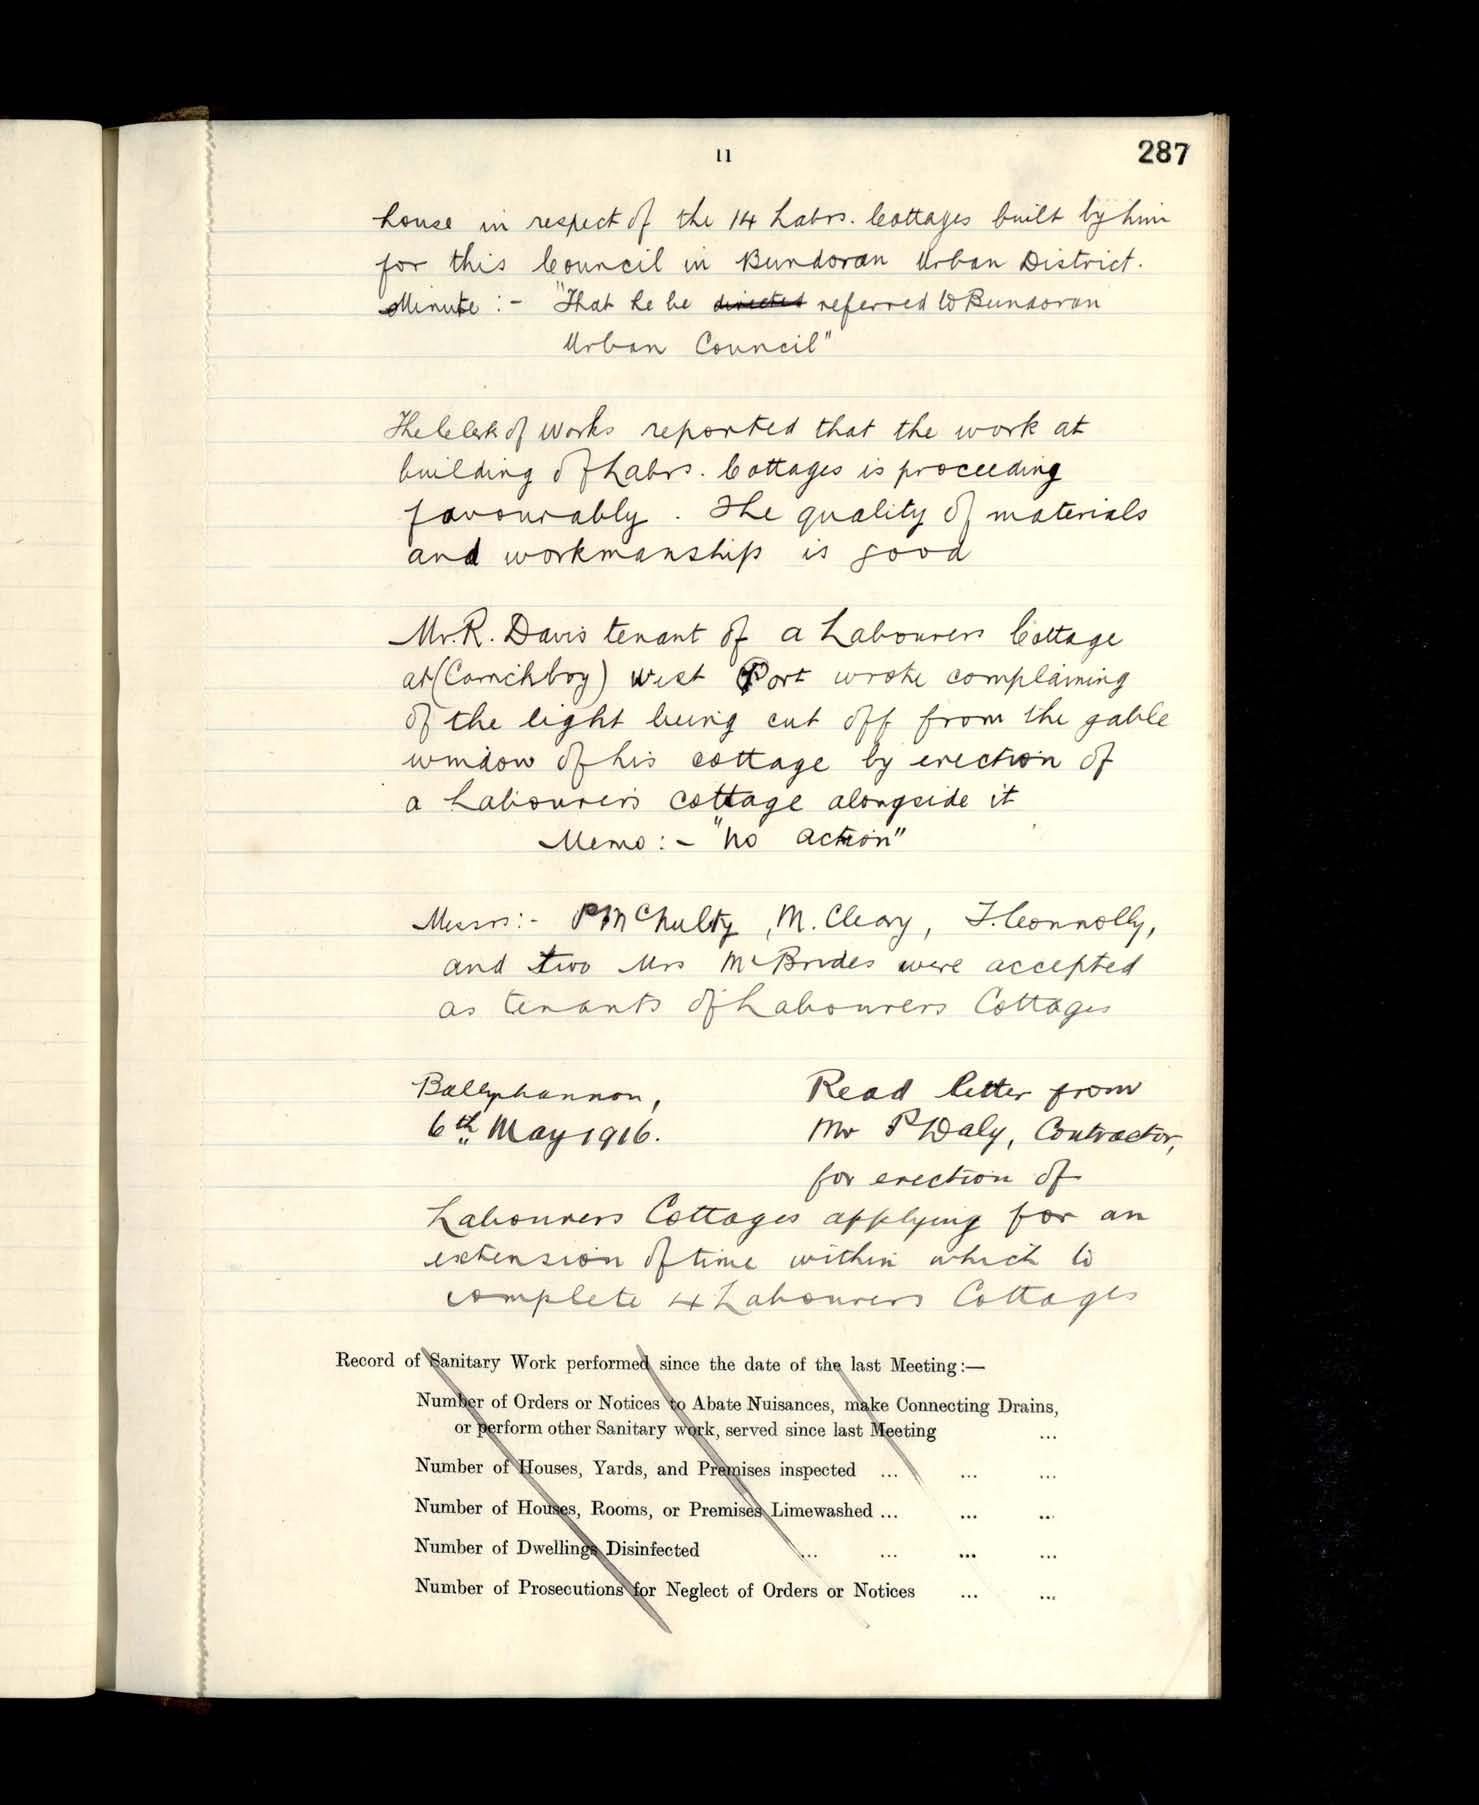 11
287
house in respect of the 14 Labrs. Cottages built by him
for this Council in Bundoran Urban District.
Minute :- "That he be directed referred to Bundoran
Urban Council"
The Clerk of Works reported that the work at
building of Labrs. Cottages is proceeding
favourably. The quality of materials
and workmanship is good
Mr. R. Davis tenant of a Labourers Cottage
at (Carrickboy) West Port wrote complaining
of the light being cut off from the gable
window of his cottage by erection of
a Labourers cottage alongside it
Memo :- "No action"
Messrs :- P McNulty, M. Cleary, T. Connolly,
and two Mrs McBrides were accepted
as tenants of Labourers Cottages
Ballyshannon,
6th May 1916.
Read letter from
Mr P Daly, Contractor,
for erection of
Labourers Cottages applying for an
extension of time within which to
complete 4 Labourers Cottages
Record of Sanitary Work performed since the date of the last Meeting:—
Number of Orders or Notices to Abate Nuisances, make Connecting Drains,
or perform other Sanitary work, served since last Meeting ...
Number of Houses, Yards, and Premises inspected ... ... ...
Number of Houses, Rooms, or Premises Limewashed ... ... ...
Number of Dwellings Disinfected ... ... ... ...
Number of Prosecutions for Neglect of Orders or Notices ... ...